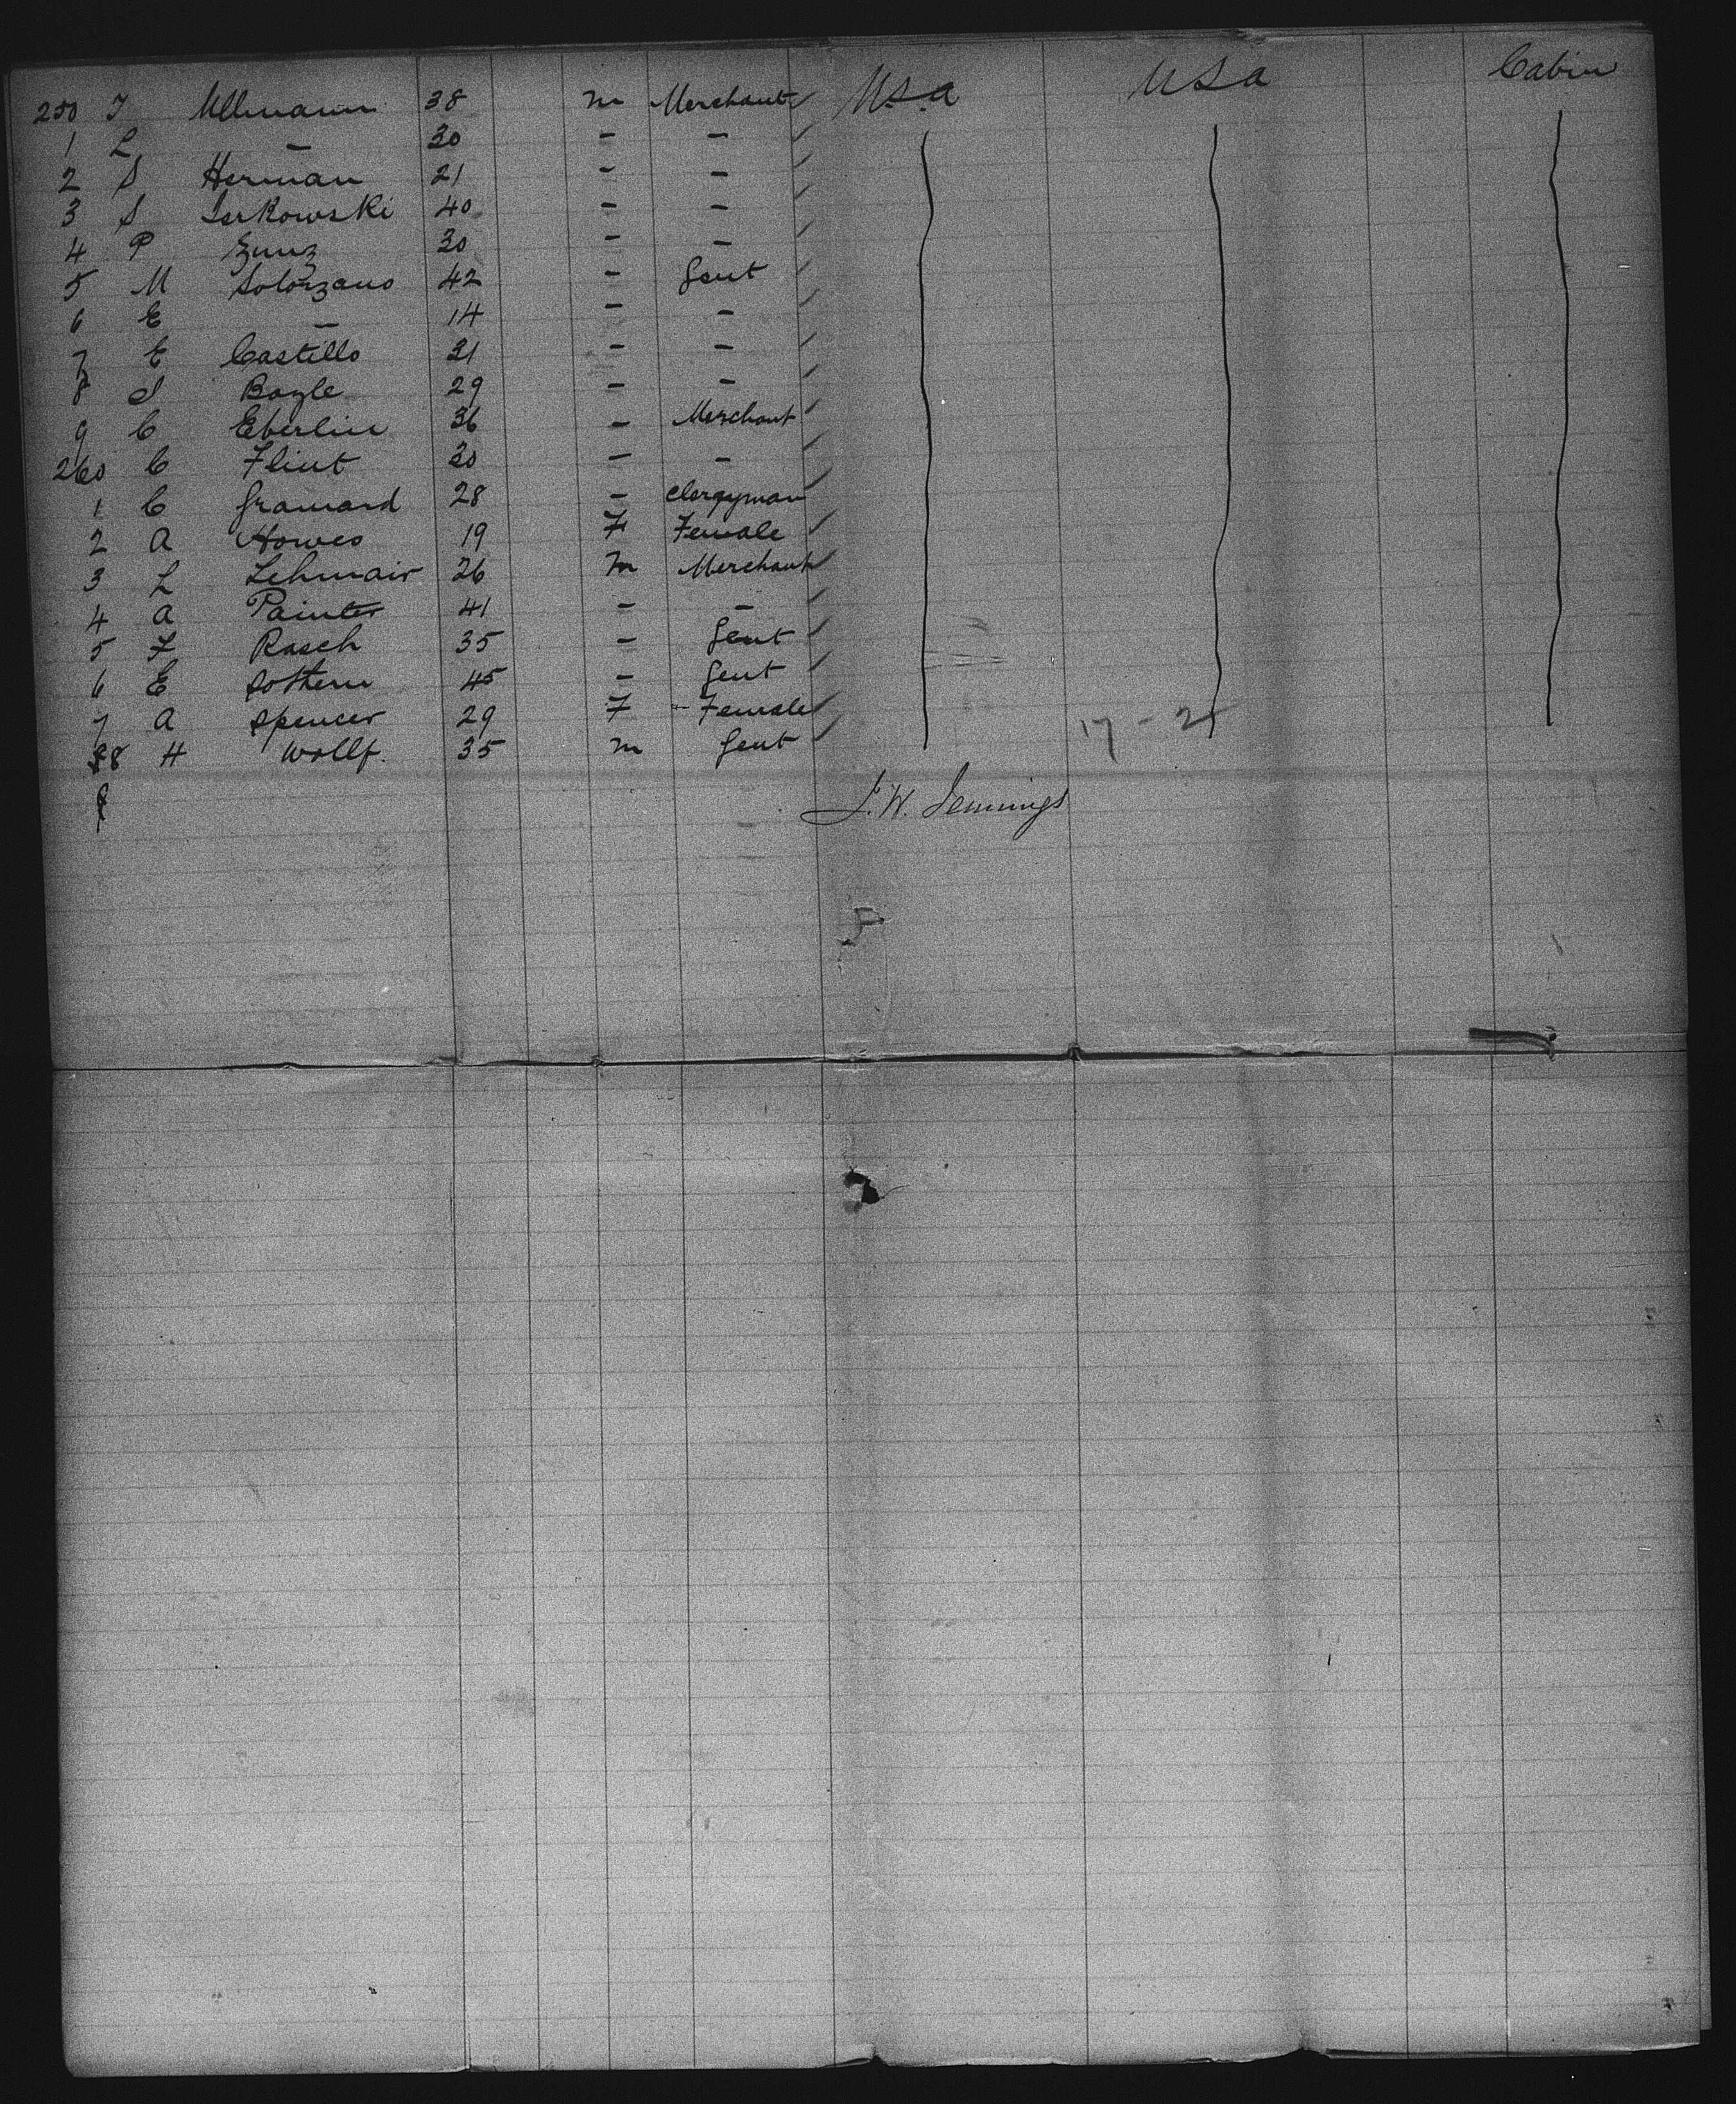 250 J Ullmann 38 m Merchant USA USA Cabin
1 L — 30 - -
2 S Herman 21 - -
3 S Serkowski 40 - -
4 P Zunz 30 - -
5 M Solorzano 42 - Gent
6 E — 14 - -
7 E Castillo 21 - -
8 S Boyle 29 - -
9 C Eberlin 36 - Merchant
260 C Flint 30 - -
1 C Gramard 28 - Clergyman
2 A Howes 19 F Female
3 L Lehmair 26 m Merchant
4 A Painter 41 - -
5 F Rasch 35 - Gent
6 E Sothern 45 - Gent
7 A Spencer 29 F - Female
8 H Wollf. 35 m Gent 17 - 2
J. W. Jennings